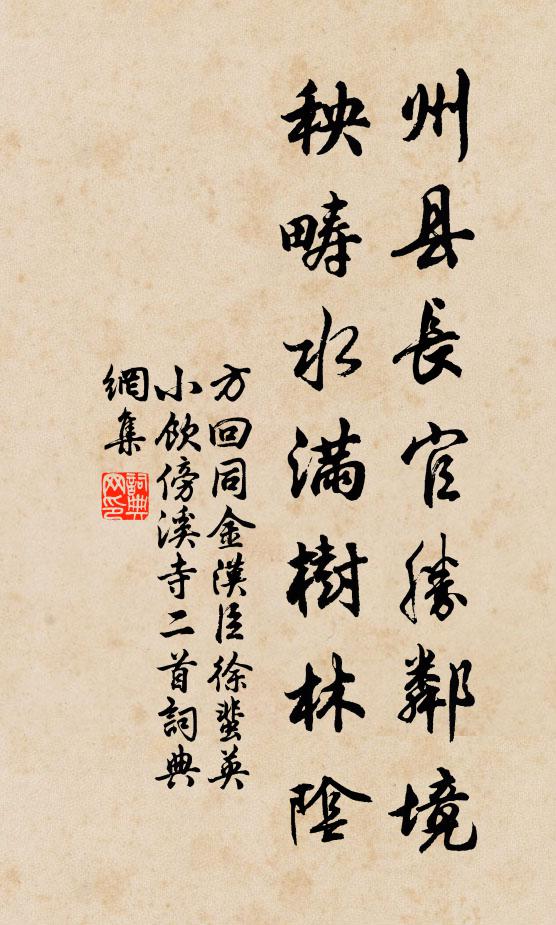 州县長官勝鄰境
秧疇水滿樹林陰
方回同金漢臣徐蜚英
小飲傍溪寺二首詞典
網集
詞典
网印